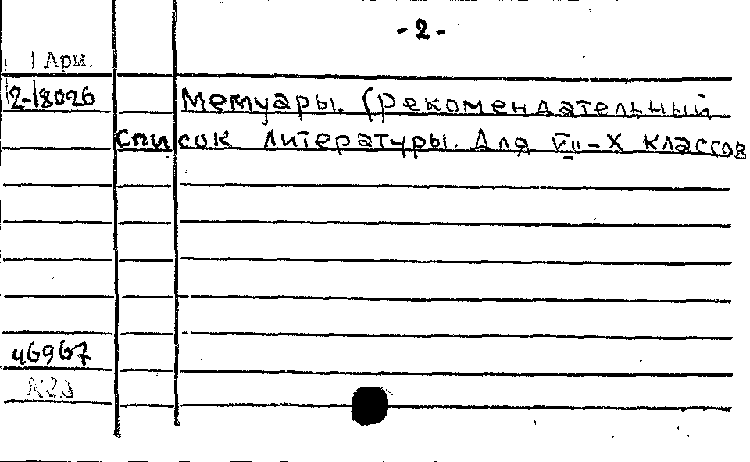 -2-
1 Арм.
2-18026
Мемуары. (рекомендательный
список литературы. Для VII-X классов
46967